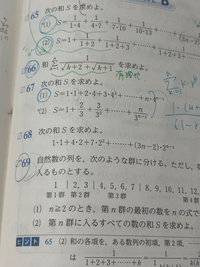 65 次の和 S を求めよ。
(1) S=1/(1・4)+1/(4・7)+1/(7・10)+1/(10・13)+……+1/((3n-
(2) S=1+1/(1+2)+1/(1+2+3)+……+1/(1+2+3+
66 和 Σ 1/(√(k+2)+√(k+1)) を求めよ。
有理化
67 次の和 S を求めよ。
(1) S=1・1+2・3+
(2) S=1+2/3+3/3²+……+n/3ⁿ⁻¹
68 次の和 S を求めよ。
1・1+4・2+7・2²+……+(3n-2)・2ⁿ⁻¹
69 自然数の列を、次のような群に分ける。ただし、
1 | 2, 3 | 4, 5, 6, 7 | 8, 9, 10, 11, 12,
第1群 第2群 第3群 第4群
(1) n≧2 のとき、第 n 群の最初の数を n の式で
(2) 第 n 群に入るすべての数の和 S を求めよ。
ヒント 65 (2) 和の各項を、ある数列の初項、第2項、
は 1/(1+2+3+……+k)